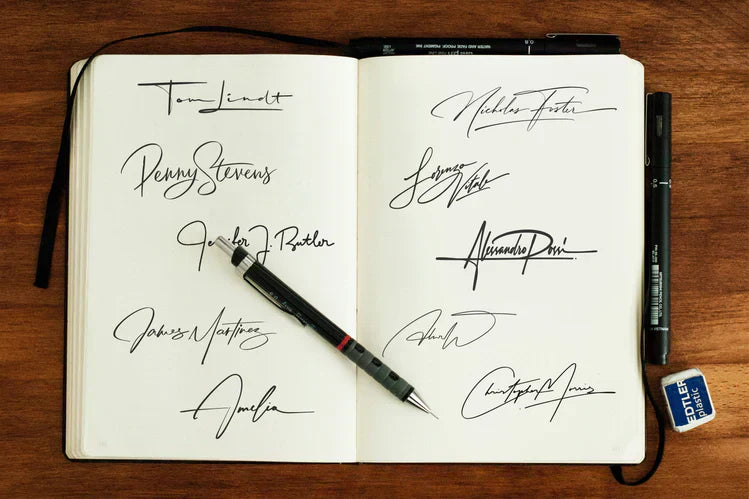 Tom Lindt
Penny Stevens
Jennifer J. Butler
James Martinez
Amelia
Nicholas Foster
Lorenzo
Vitali
Alessandro Rossi
Christopher Morris
WATER AND FADE PROOF, PIGMENT INK
0.8
0.5
EDTLER
plastic